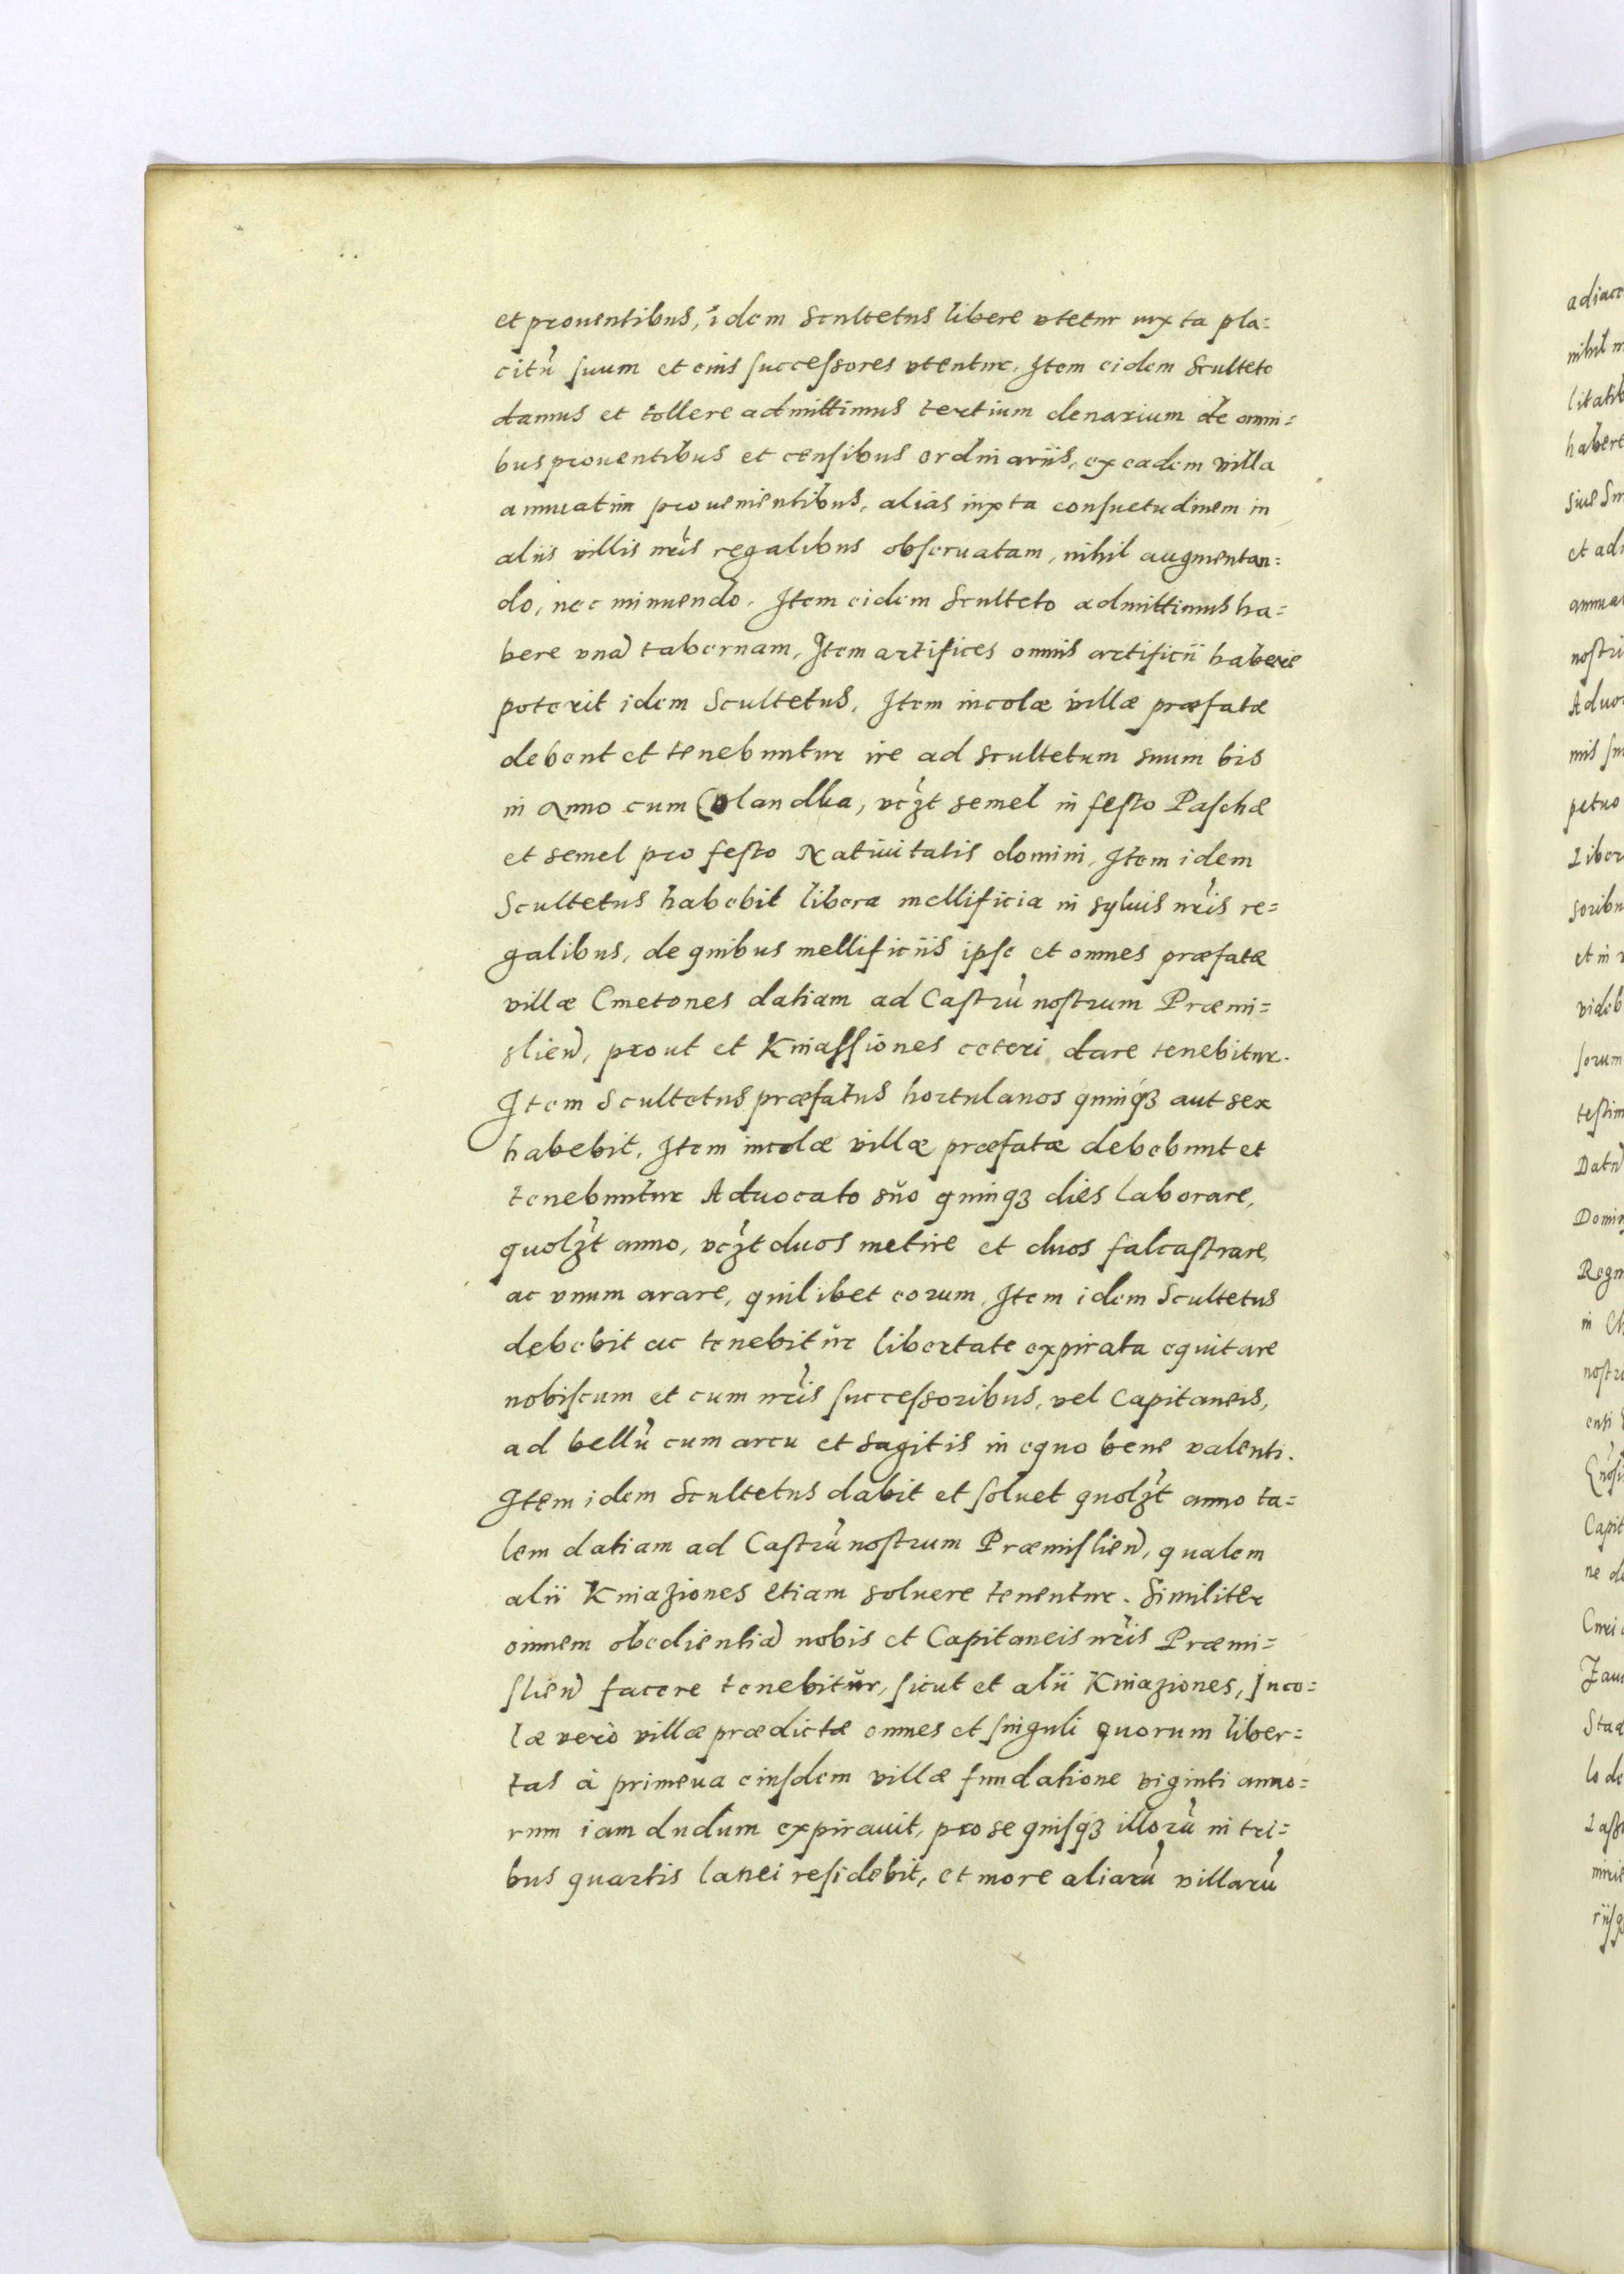 et prouentibus, idem Scultetus libere vtetur iuxta pla=
citũ suum et eius successores vtentur. Item eidem Sculteto
damus et tollere admittimus tertium denarium de omni=
bus prouentibus et censibus ordinariis, ex eadem villa
annuatim prouenientibus, alias iuxta consuetudinem in
aliis villis nr̃is regalibus obseruatam, nihil augmentan=
do, nec minuendo. Item eidem Sculteto admittimus ha=
bere vnã tabernam, Item artifices omnis artificii habere
poterit idem Scultetus. Item incolæ villæ præfatæ
debent et tenebuntur ire ad scultetum suum bis
in Anno cum Colandka, vcz̃t semel in festo Paschæ
et semel pro festo Natiuitatis domini, Item idem
Scultetus habebit libera mellificia in syluis nr̃is re=
galibus, de quibus mellificiis ipse et omnes præfatæ
villæ Cmetones datiam ad Castrũ nostrum Præmi=
slieñ, prout et Kniassiones ceteri dare tenebitur.
Item Scultetus præfatus hortulanos quinqꝫ aut sex
habebit. Item incolæ villæ præfatæ debebunt et
tenebuntur Aduocato suo quinqꝫ dies laborare,
quolz̃t anno, vcz̃t duos metire et duos falcastrare,
ac vnum arare, quilibet eorum. Item idem Scultetus
debebit ac tenebitur libertate expirata equitare
nobiscum et cum nr̃is successoribus, vel Capitaneis,
ad bellũ cum arcu et sagitis in equo bene valenti.
Item idem Scultetus dabit et soluet quolz̃t anno ta=
lem datiam ad Castrũ nostrum Præmislieñ, qualem
alii Kniaziones etiam soluere tenentur. Similiter
omnem obedientiã nobis et Capitaneis nr̃is Præmi=
slieñ facere tenebitur, sicut et alii Kniaziones, Inco=
læ verò villæ prædictæ omnes et singuli quorum liber=
tas à primeua eiusdem villæ fundatione viginti anno=
rum iam dudum expirauit, pro se quisqꝫ illorũ in tri=
bus quartis lanei residebit, et more aliarũ villarũ